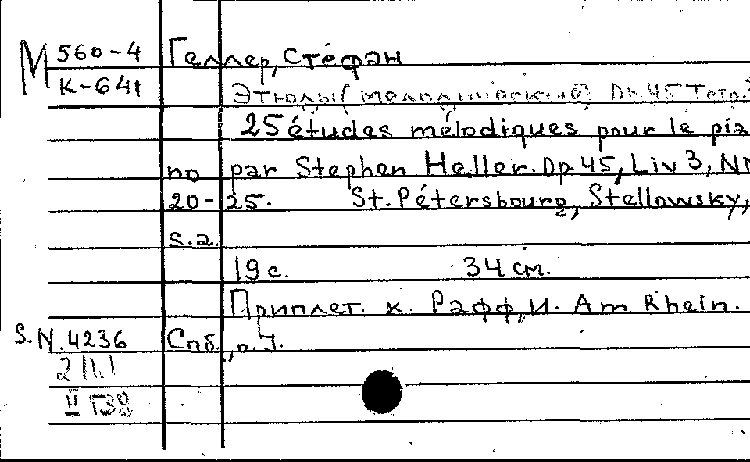 M 560-4 Геллер, Стефэн
К-641
Этюды( мелодические) Op.45 Тетр.
25 études mélodiques pour le pia
no par Stephen Heller. Op 45, Liv 3, NN
20-25. St. Pétersbourg, Stellowsky,
s.a.
19 с. 34 см.
Приплет. к. Рафф, И. Am Rhein.
S. N. 4236 Спб.,